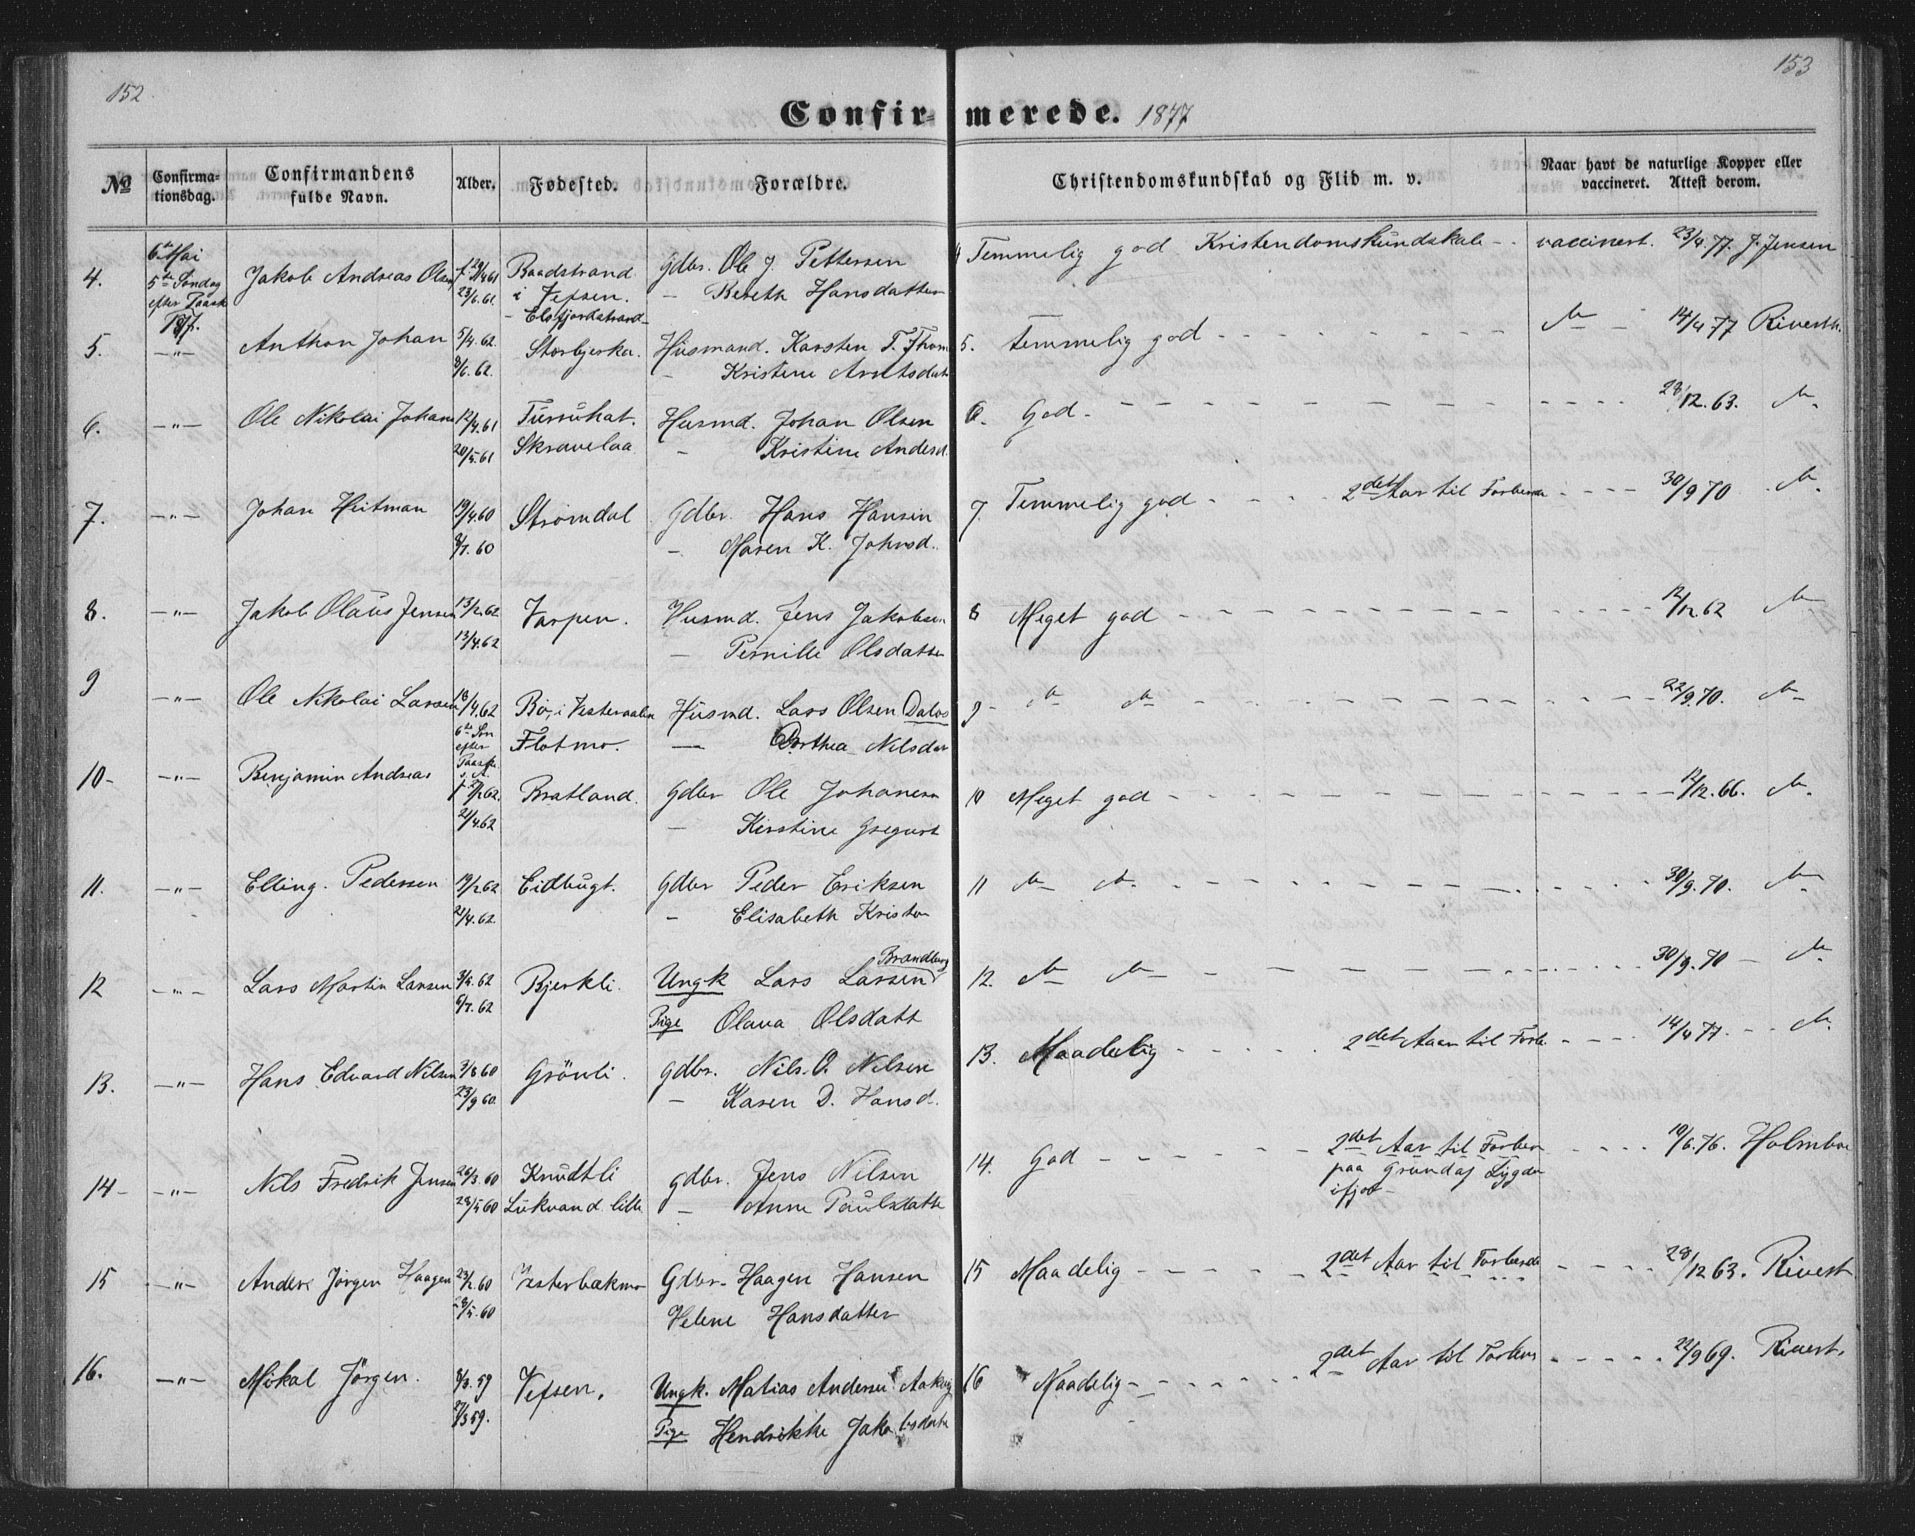 152
153
Confirmerede. 1877
No
Confirmationsdag.
Confirmandens fulde Navn.
Alder.
Fødested.
Forældre.
Christendomskundskab og Flid m. v.
Naar havt de naturlige Kopper eller vaccineret. Attest derom.
4. 6te Mai 5te Søndag efter Paaske 1877. Jakob Andreas Olsen 23/6.61. Baadstrand i Vefsen. - Elsfjordstrand - Gdbr. Ole J. Pettersen
- Bereth Hansdatter
4 Temmelig god Kristendomskundskab - - vaccinert. 23/4.77. J. Jensen
5. -"- Anthon Johan 5/4.62. 8/6.62. Storbjerka. Husmand. Karsten T. Thom
- Kristine Arntsdatt
5. temmelig god - - - 14/4 77 Riverth.
6. -"- Ole Nikolai Johans 12/4.61 20/5.61 Skravelaa Husmd. Johan Olsen
- Kristine Andersd.
6. God - - - 28/12.63.
7. -"- Johan Heitman 19/4.60 8/7.60 Strømdal Gdbr. Hans Hansen
- Maren K. Johnsd.
7. Temmelig god - - - 2det Aar til Forbered - - - 30/9 70
8. -"- Jakob Olaus Jensen 13/2.62 13/4.62 Varpen. Husmd. Jens Jakobsen
- Pernille Olsdatter
8 Meget god - - - 12/12 62
9 -"- Ole Nikolai Larsen 18/4.62 6te Søn efter Paaske Bø, i Vesteraalen Flotmo. Husmd. Lars Olsen Dalos
- Dorthea Nilsdat
9 - - - 22/9.70.
10- -"- Benjamin Andreas 21/4.62 Bratland. Gdbr Ole Johanesn
- Kirstine Gregurs
10 Meget god - - - 12/12.66.
11. -"- Elling. Pedersen 19/2 62 21/4.62 Eidbugt. Gdbr Peder Eriksen
- Elisabeth Kristen
11 - - - 30/9.70.
12 -"- Lars Martin Larsen 3/5.62 6/7.62 Bjerkli. Ungk Lars Larsen Brandberg
Pige Olava Olsdatt
12. - - - 30/9.70
13. -"- Hans Edvard Nilsen 3/8 60 23/9 60. Grönli. Gdbr. Nils O. Nilsen
- Karen D. Hansd.
13. Maadelig - - - 2det Aar til Forb. - - - 14/4 77.
14- -"- Nils Fredrik Jensen 26/3.60 28/5 60 Knudtli Lukvand. lille Gdbr. Jens Nilsen
- Anne Paulsdatte
14. God - - - 2det Aar til Forber paa Grund af Sygdom ifjor - - - 10/6.76. Holmboe
15 -"- Anders Jørgen Haagen 23/2.60 28/5.60 Vesterbækmo Gdbr. Haagen Hansen
Helene Hansdatter
15 Maadelig - - - 2det Aar til Forberede - - - 28/12 63. Riverth
16. -"- Mikal Jörgen. 8/3.59 27/3 59. Vefsen. Ungk. Matias Andersen Aakvig
Pige Hendrikke Jakobsdatte
16 Maadelig - - - 2det Aar til Forbere - - - 22/9 69. Riverth.